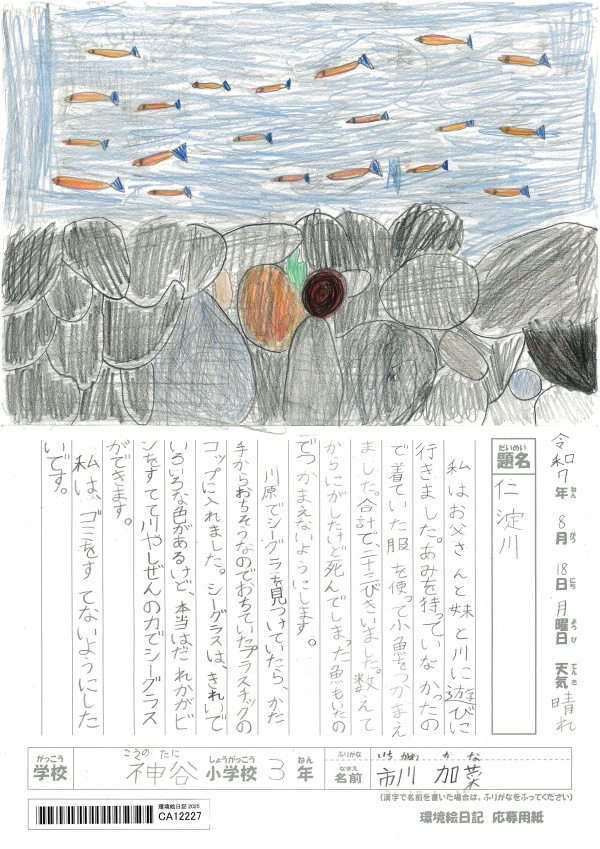 令和7年 8月 18日 月曜日 天気 晴れ
ねん がつ にち ようび てんき
だいめい
題名
仁淀川
私はお父さんと妹と川に遊びに
行きました。あみを持っていなかったの
で着ていた服を使って小魚をつかまえ
ました。合計で二十三びきいました。数えて
からにがしたけど死んでしまった魚もいたの
でつかまえないようにします。
川原でシーグラを見つけていたら、かた
手からおちそうなのでおちていたプラスチックの
コップに入れました。シーグラスは、きれいで
いろいろな色があるけど、本当はだれかがビ
ンをすてて川やしぜんの力でシーグラス
ができます。
私は、ゴミをすてないようにした
いです。
がっこう こうの たに しょうがっこう ねん
学校 神谷 小学校 3年
ふりがな いちかわ かな
なまえ
名前 市川 加菜
(漢字で名前を書いた場合は、ふりがなをふってください)
環境絵日記 2025
CA12227
環境絵日記 応募用紙